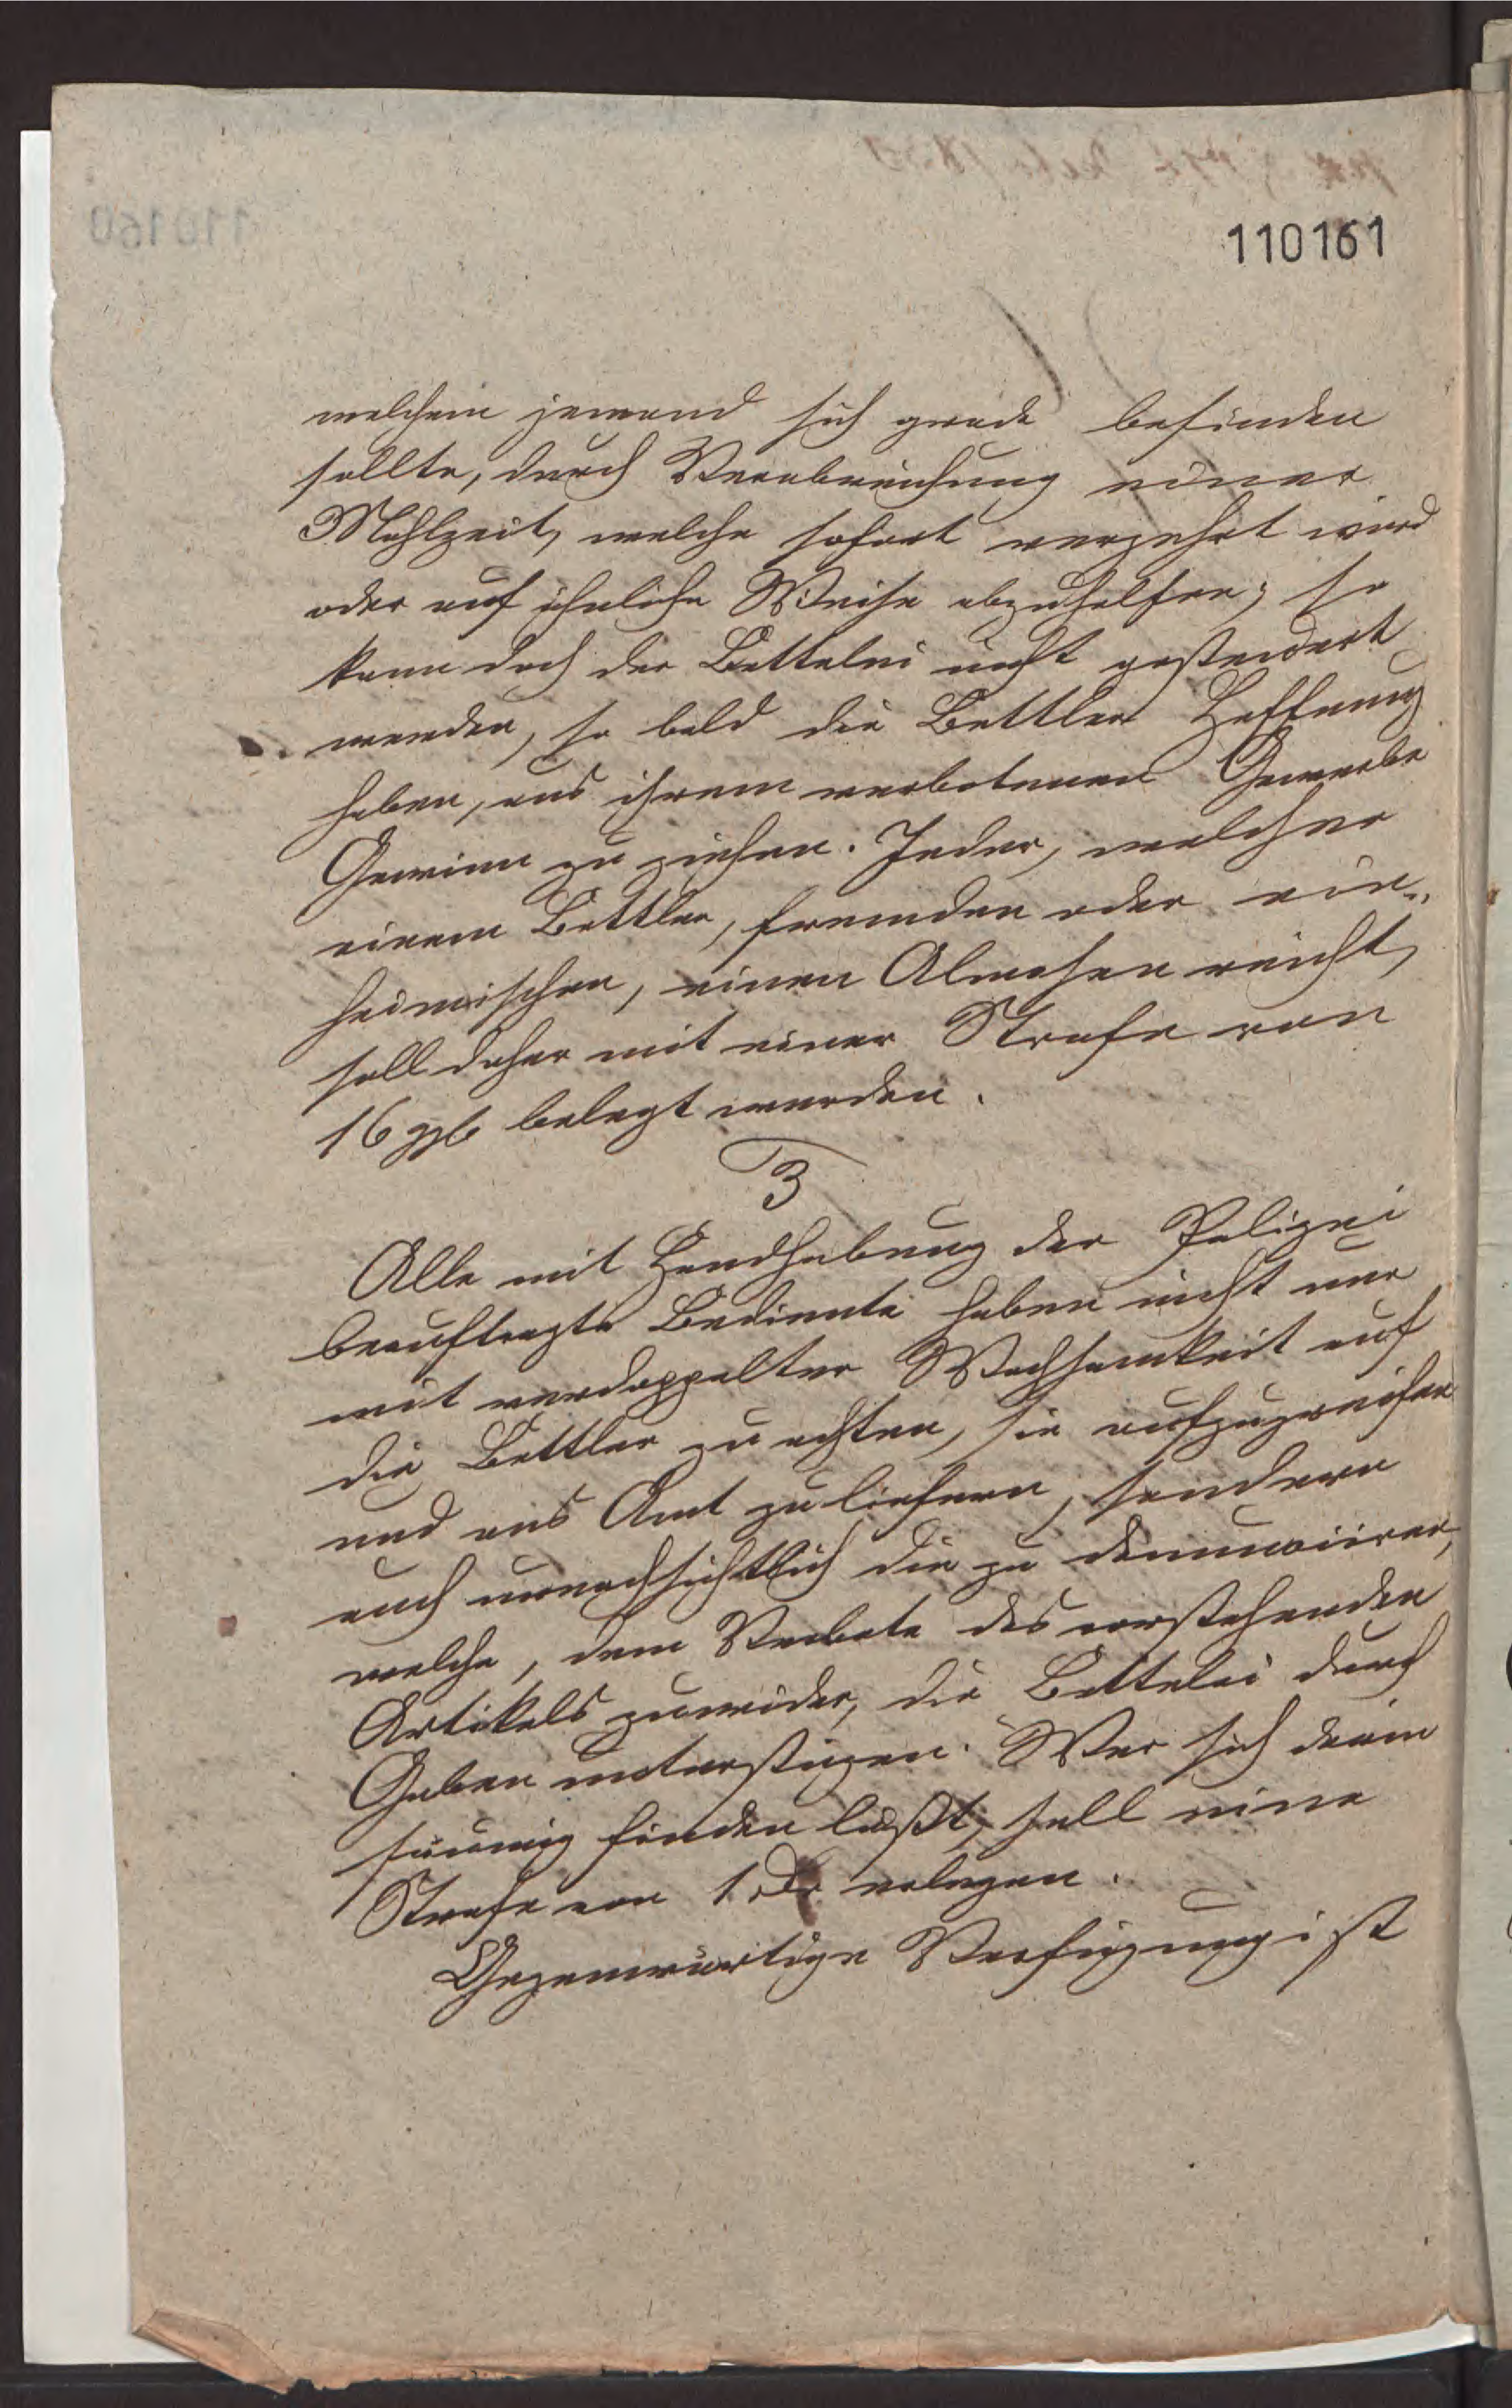 110161
welchem jemand sich grade befinden
sollte, durch Verabreichung einer
Mahlzeit, welche sofort verzehrt wird
oder auf ähnliche Weise abzuhelfen; so
kann doch der Bettelei nicht gesteuert
werden, so bald die Bettler Hoffnung
haben, aus ihrem verbotenen Gewerbe
Gewinn zu ziehen. Jeder, welcher
einem Bettler, fremden oder ein-
heimischen, einen Almosen reicht,
soll daher mit einer Strafe von
16 ggr belegt werden.
3
Alle mit Handhabung der Polizei
beauftragte Bediente haben nicht nur
mit verdoppelter Wachsamkeit auf
die Bettler zu achten, sie aufzugreifen
und ans Amt zu liefern, sondern
auch unnachsichtlich die zu denunciiren,
welche, dem Verbote des vorstehenden
Artikels zuwider, die Bettelei durch
Gaben unterstüzen. Wer sich darin
säumig finden läßt, soll eine
Strafe von 1 erlegen.
Gegenwärtige Verfügung ist